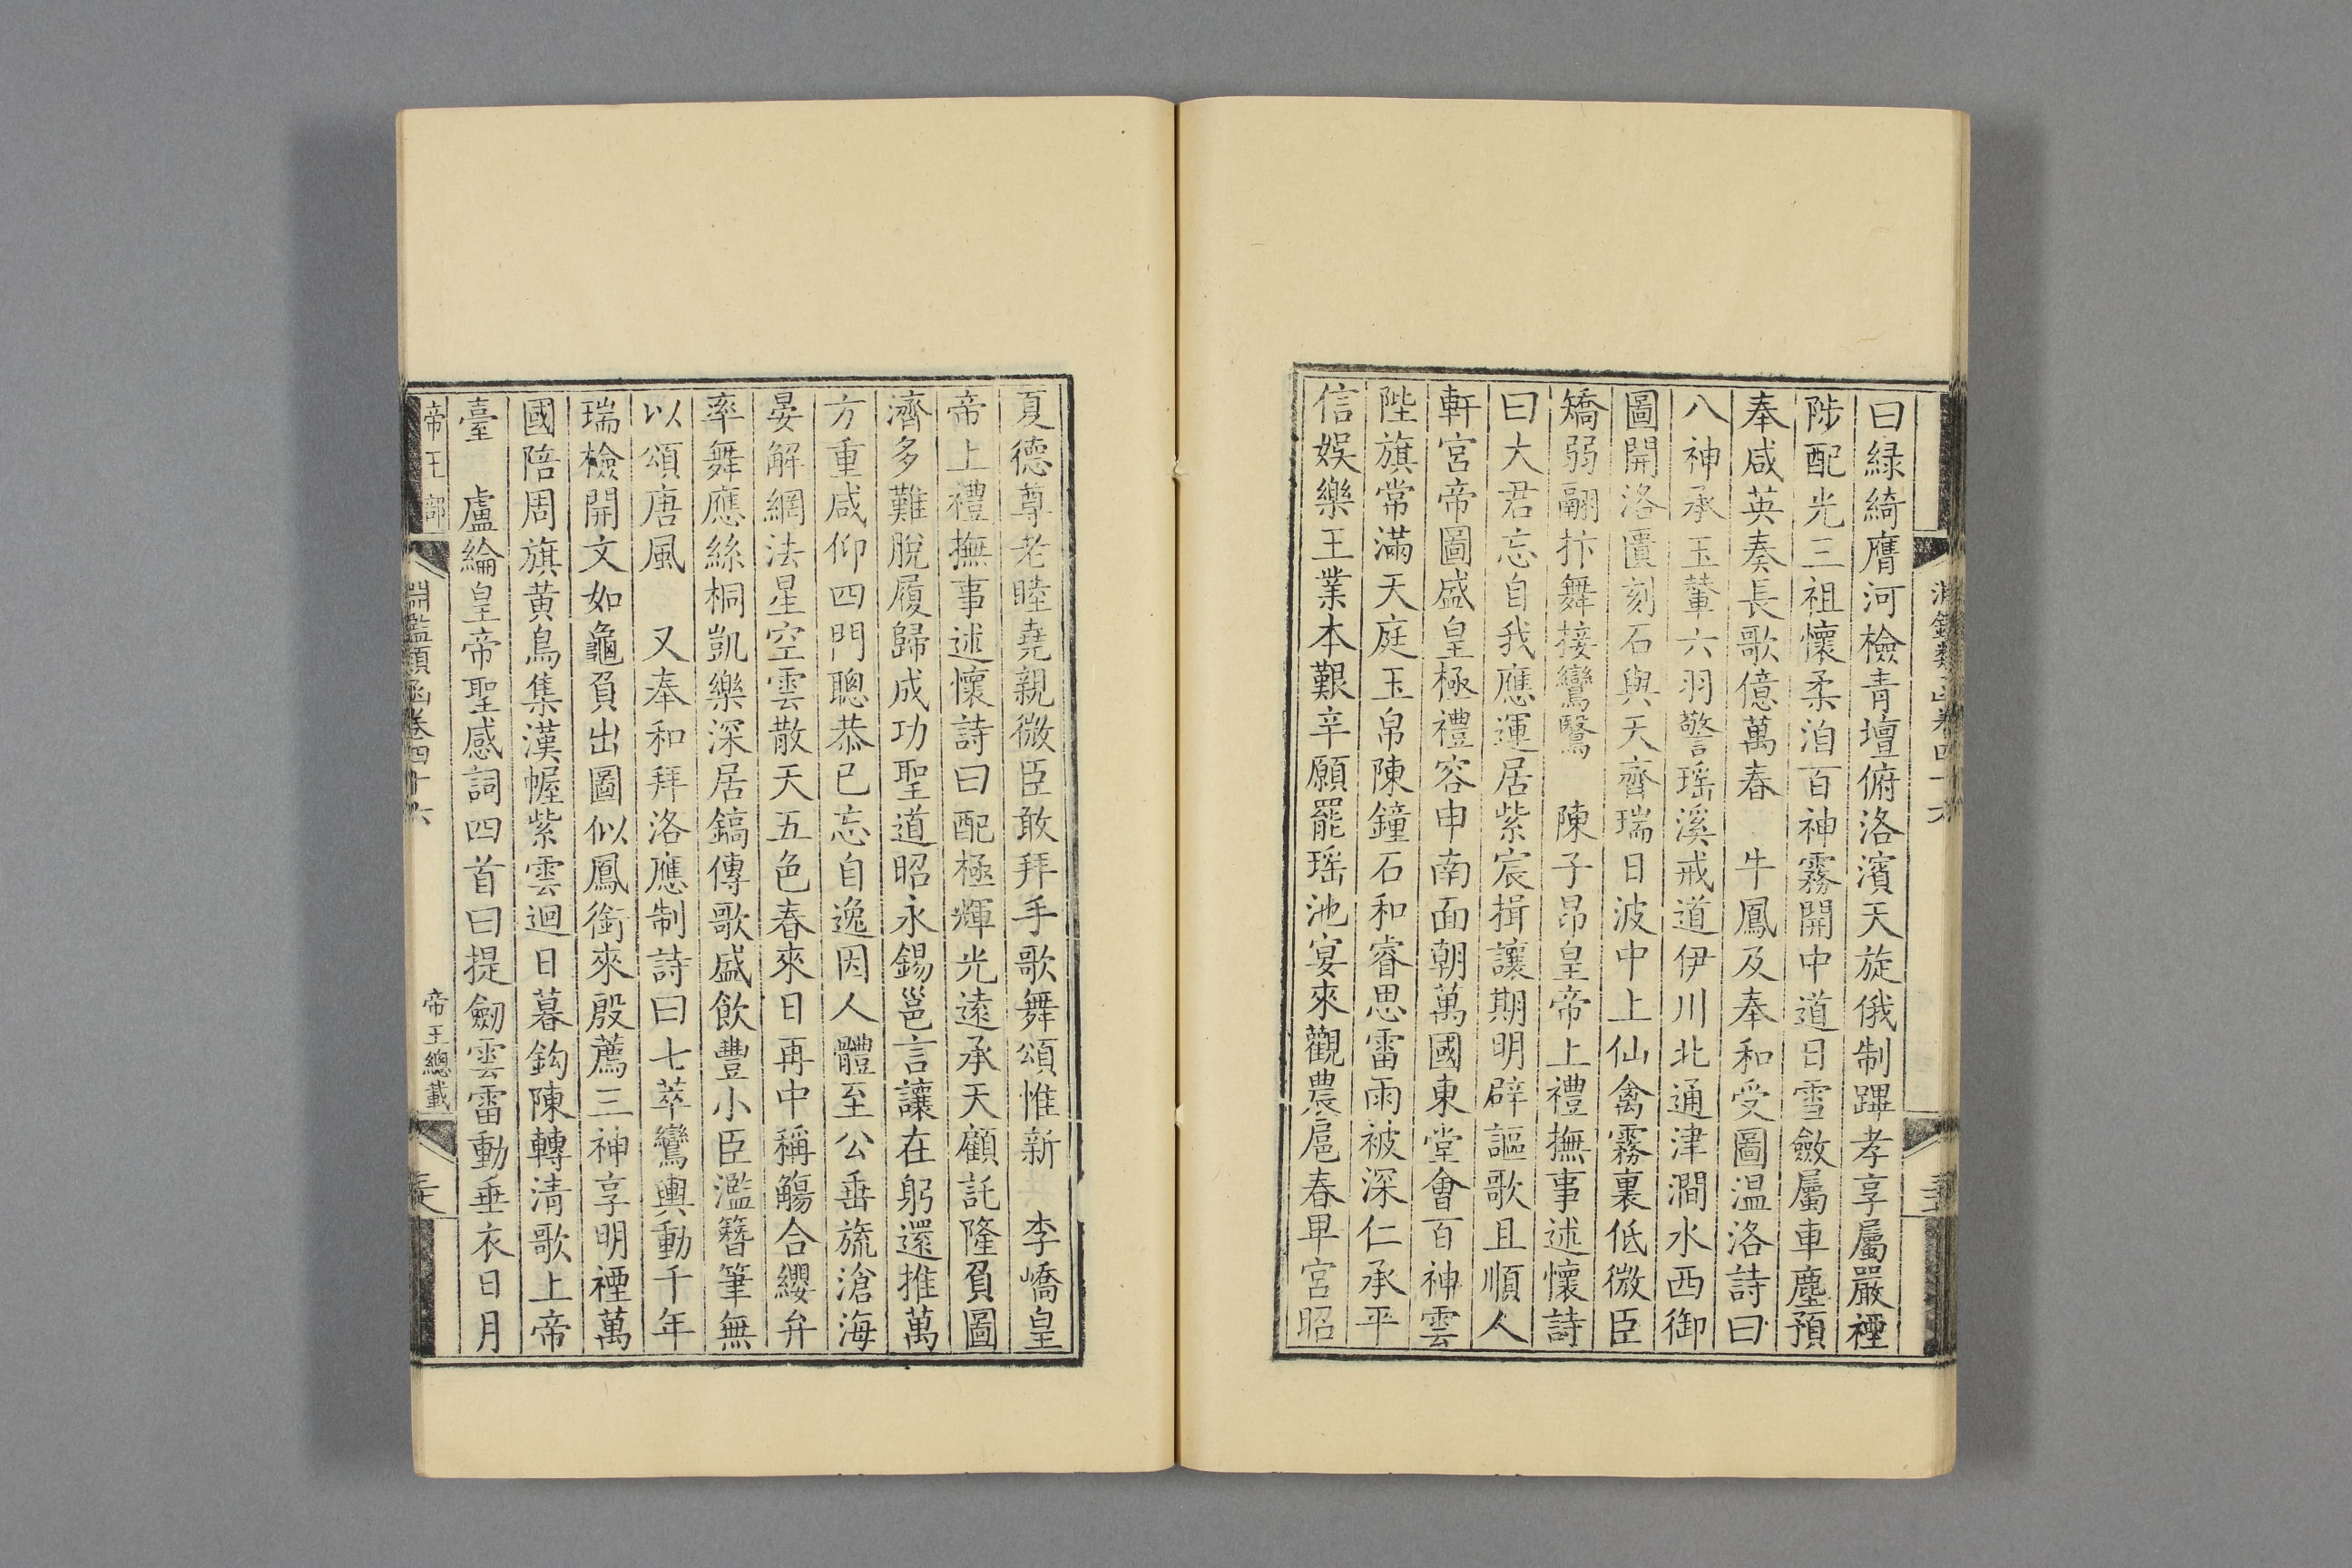 曰綠綺膺河檢青壇俯洛濱天旋俄制蹕孝享屬嚴禋
陟配光三祖懷柔洎百神霧開中道日雪斂屬車塵預
奉咸英奏長歌億萬春　牛鳳及奉和受圖温洛詩曰
八神承玉輦六羽警瑤溪戒道伊川北通津澗水西御
圖開洛匱刻石與天齊瑞日波中上仙禽霧裏低微臣
矯弱翮抃舞接鸞鷖　陳子昂皇帝上禮撫事述懷詩
曰大君忘自我應運居紫宸揖讓期明辟謳歌且順人
軒宮帝圖盛皇極禮容申南面朝萬國東堂會百神雲
陛旗常滿天庭玉帛陳鐘石和睿思雷雨被深仁承平
信娛樂王業本艱辛願罷瑤池宴來觀農扈春卑宮昭
夏德尊老睦堯親微臣敢拜手歌舞頌惟新　李嶠皇
帝上禮撫事述懷詩曰配極輝光遠承天顧託隆負圖
濟多難脫履歸成功聖道昭永錫邕言讓在躬還推萬
方重咸仰四門聰恭已忘自逸因人體至公垂旒滄海
晏解網法星空雲散天五色春來日再中稱觴合纓弁
率舞應絲桐凱樂深居鎬傳歌盛飲豐小臣濫簪筆無
以頌唐風　又奉和拜洛應制詩曰七萃鸞輿動千年
瑞檢開文如龜負出圖似鳳銜來殷薦三神享明禋萬
國陪周旗黃鳥集漢幄紫雲迴日暮鈎陳轉清歌上帝
臺　盧綸皇帝聖感詞四首曰提劒雲雷動垂衣日月
帝王部
淵鑑類函卷四十六
帝王總載